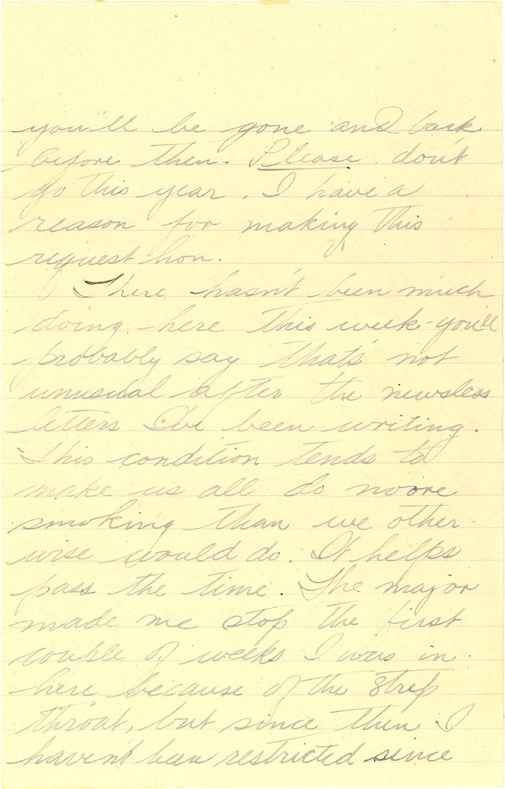 you'll be gone and back
before then. Please don't
go this year. I have a
reason for making this
request hon.
There hasn't been much
doing here this week - you'll
probably say that's not
unusual after the newsless
letters I've been writing.
This condition tends to
make us all do more
smoking than we other-
wise would do. It helps
pass the time. The major
made me stop the first
couple of weeks I was in
here because of the strep
throat, but since then I
haven't been restricted since